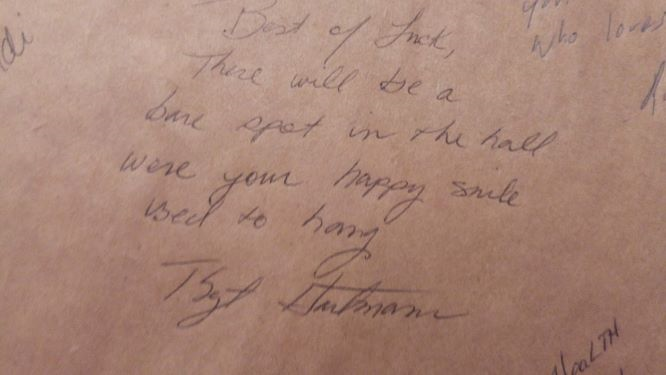 Best of Luck,
There will be a
bare spot in the hall
were your happy smile
used to hang
TSgt
who loves
HeaLTH